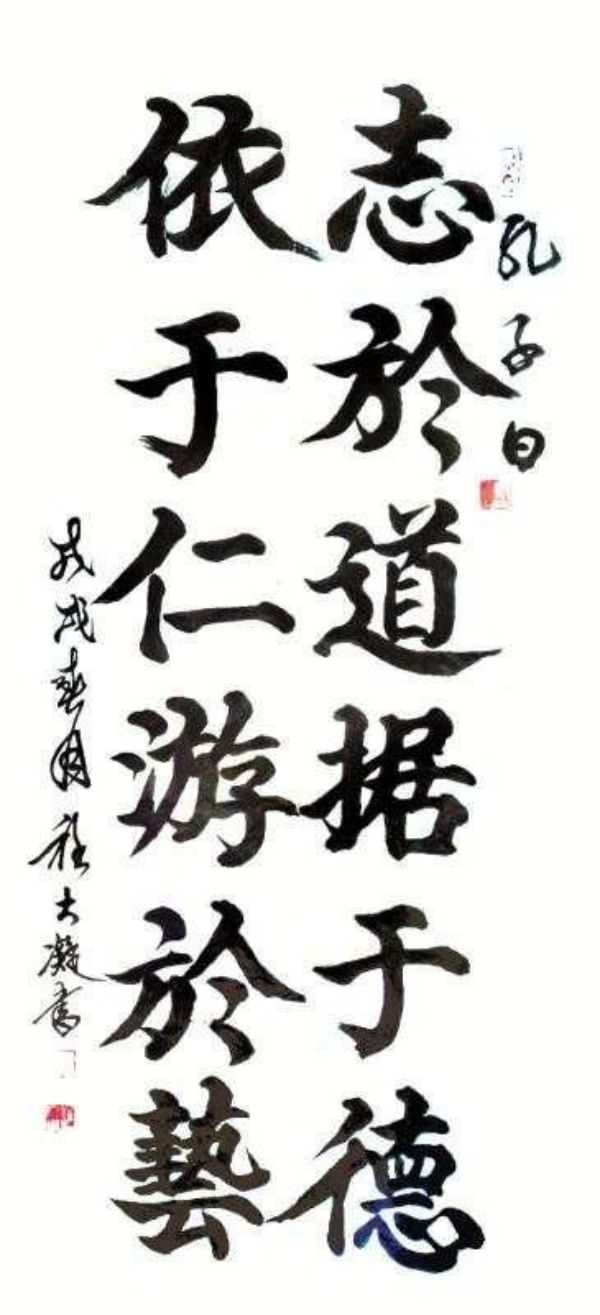 孔子曰
志於道据于德
依于仁游於藝
戊戌春月程大凝書